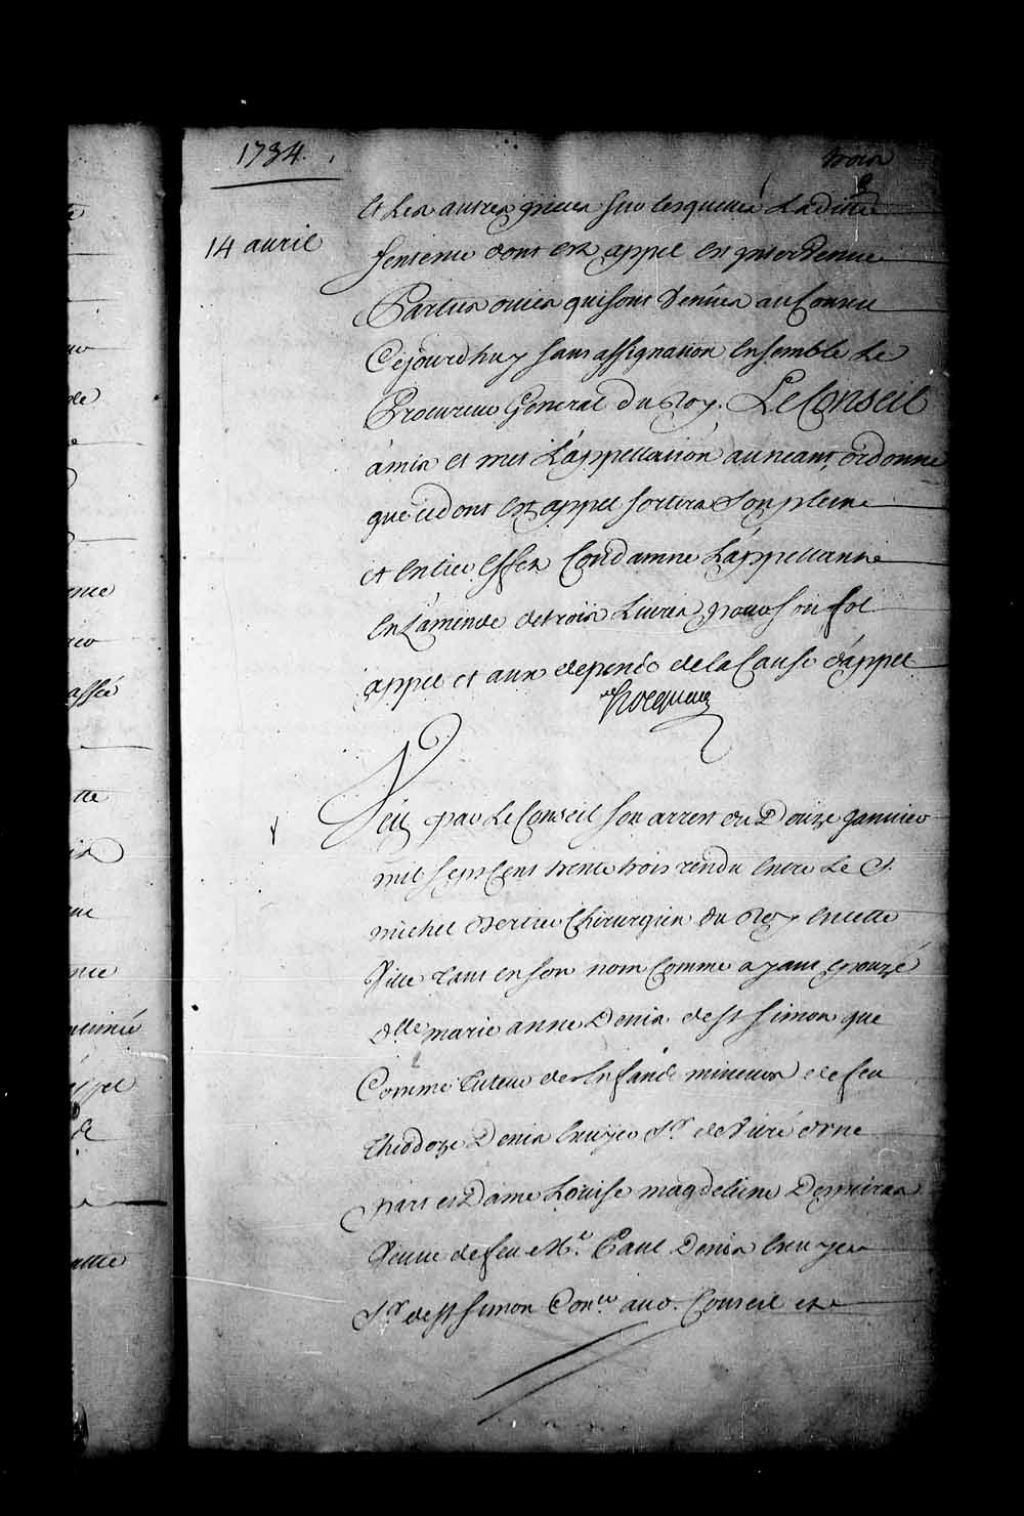 1734.
trois
et les autres pieces sur lesquelles Laditte
14 avril
Sentence dont est appel est intervenue
Parties ouies qui sont venües au Conseil
Cejourd'huy sans assignation Ensemble Le
Procureur General du Roy. Le Conseil
à mis et met L'appellation au neant, ordonne
que ce dont est appel sortira son pleine
et entier effet Condamne L'appellante
en L'amende de trois Livres pour son fol
appel et aux depends de la Cause d'appel
Hocquart
Veu par Le Conseil son arrest du Douze Janvier
mil sept Cent trente trois rendu entre Le S.
michel Bertier Chirurgien du Roy en cette
Ville tant en son nom Comme ayant epouzé
dlle marie anne Denis de st Simon que
Comme tuteur des Enfants mineurs de feu
theodoze Denis Sr. de Vitré d'une
part et Dame Louise magdeleine Depuiras
Veuve de feu Me. Paul Denis
Sr. de st Simon Conr. aud. Conseil et